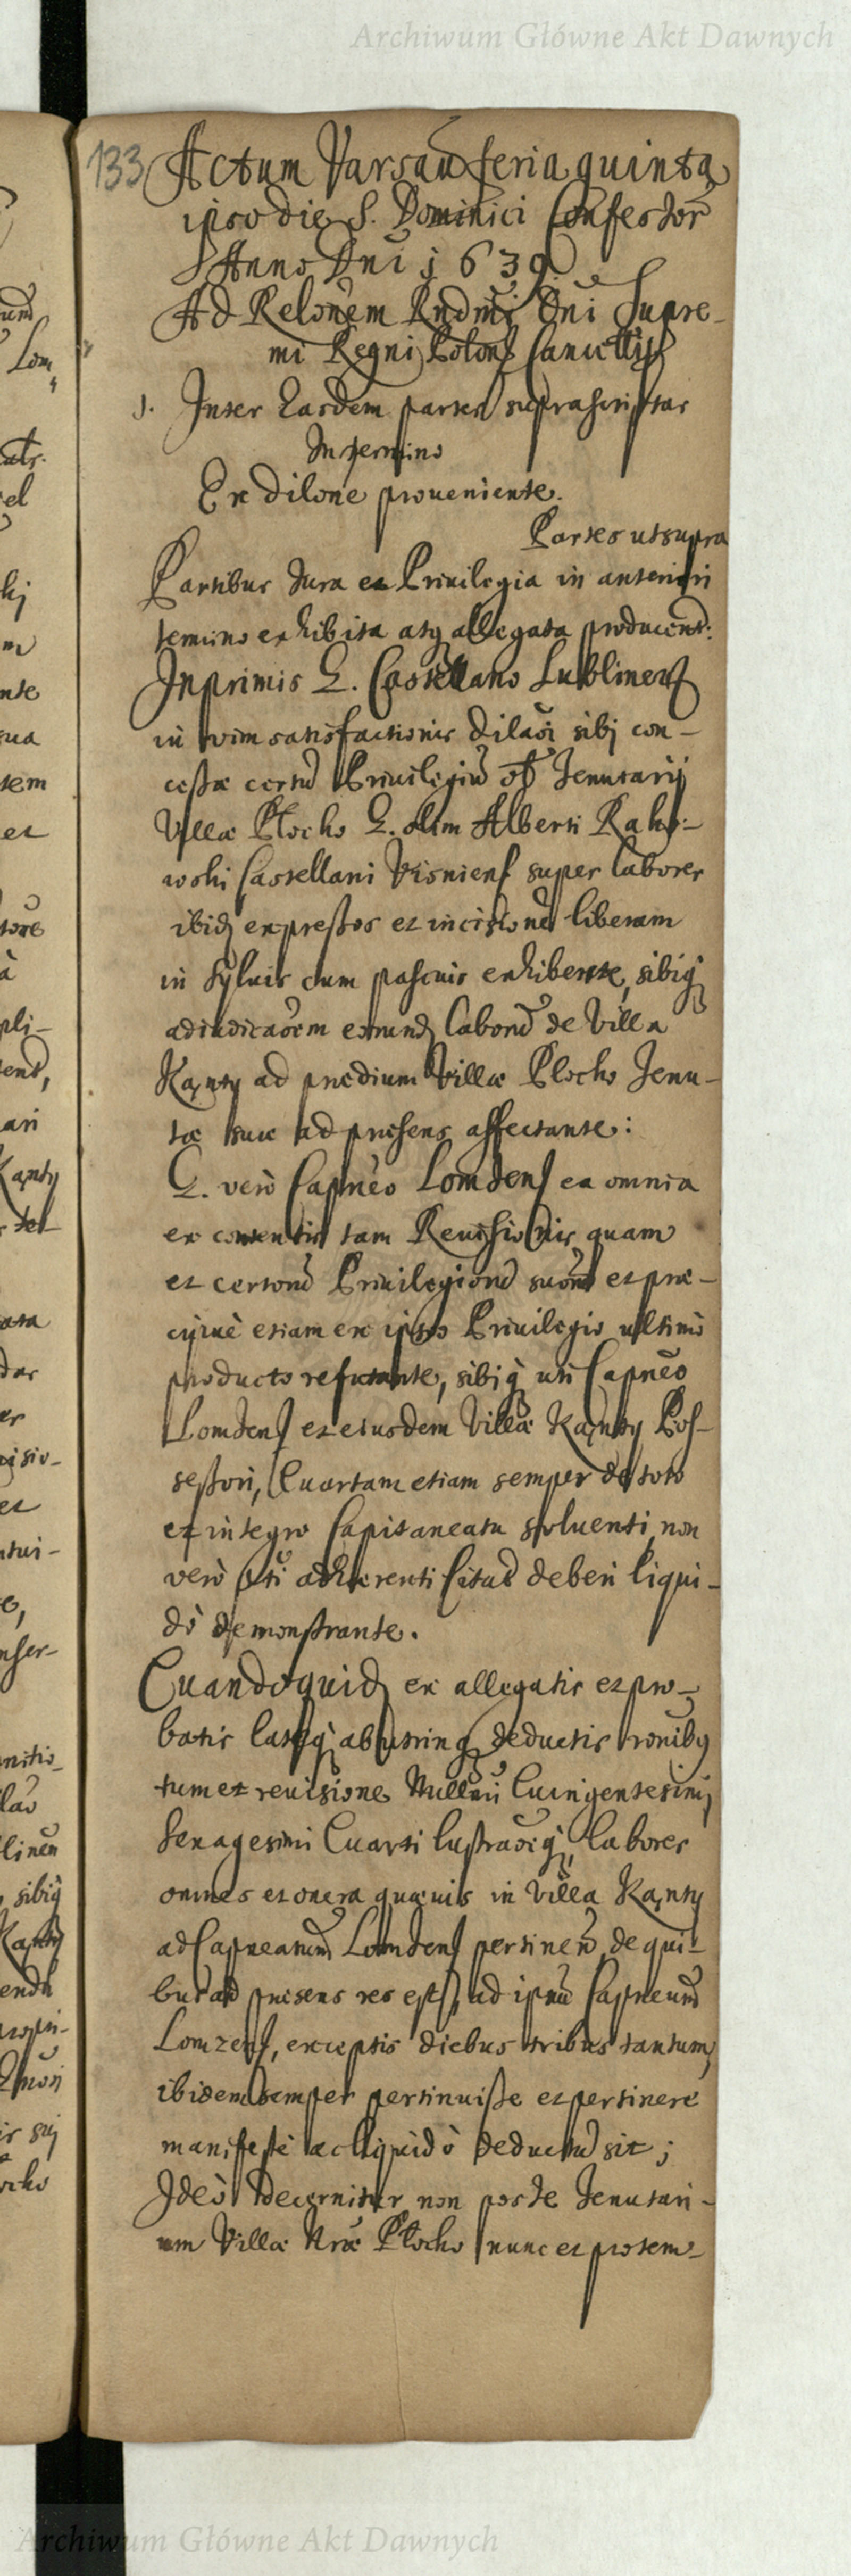 Archiwum Główne Akt Dawnych
133 Actum Varsaw feria quinta
ipso die S. Dominici Confessor
Anno Dni j639
Ad Relonem Rndmi Dni Supre-
mi Regni Polon Cancellij
j. Inter Easdem partes suprascriptas
In termino
Ex Dilone proueniente.
Partes ut supra
Partibus Jura et Priuilegia in anteriori
termino exhibita atq allegata producent:
Inprimis G. Castellano Lublinens
in vim satisfactionis Dilaoi sibj con-
cessæ certu Priuilegiu olim Tenutarij
Villæ Plocho G. olim Alberti Rako-
wski Castellani Visniens super labores
ibid expressos et incisione liberam
in syluis cum pascuis exhibente, sibiq
adiudicaoem eorund laboru de Villa
Kąnty ad prædium Villæ Plocho Tenu-
tæ suæ ad præsens affectante:
G. verò Capneo Lomzens ea omnia
ex contentis tam Reuisionis quam
et certoru Priuilegioru suoru et præ-
cipuè etiam ex ipso Priuilegio ultimo
producto refutante, sibiq uti Capneo
Lomzens et eiusdem Villæ Kąnty Pos-
sessori, Quartam etiam semper de toto
et integro Capitaneatu soluenti, non
verò uti adhærenti Citat deberi liqui-
dò demonstrante.
Quandoquid ex allegatis et pro-
batis lateq ab utrinq deductis ronibq
tum et reuisione Millmi Quingentesimj
Sexagesimi Quarti lustraoeq, labores
omnes et onera quæuis in Villa Kąnty
ad Capneatum Lomzens pertinen, de qui-
bus ad præsens res est, ad ipsu Capneum
Lomzens, exceptis diebus tribus tantum
ibidem semper pertinuisse et pertinere
manifestè ac liquidò deductu sit;
Ideò decernitur non posse Tenutari-
um Villæ Nræ Plocho nunc et pro tem-
Archiwum Główne Akt Dawnych